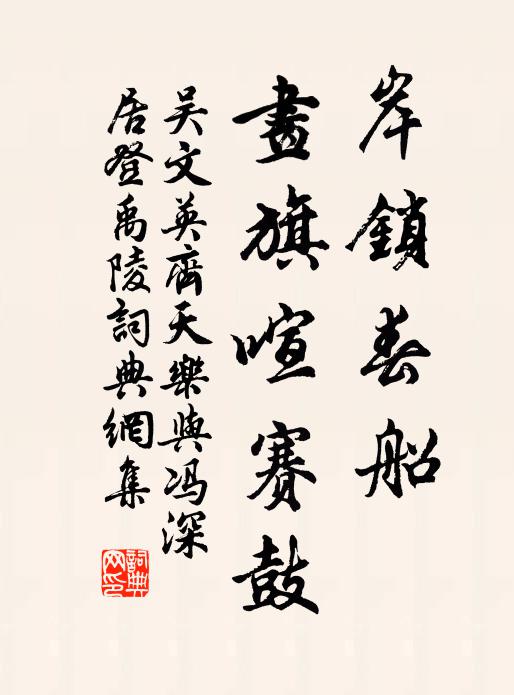 岸鎖春船
畫旗喧賽鼓
吳文英齊天樂與冯深
居登禹陵詞典網集
詞典
网印